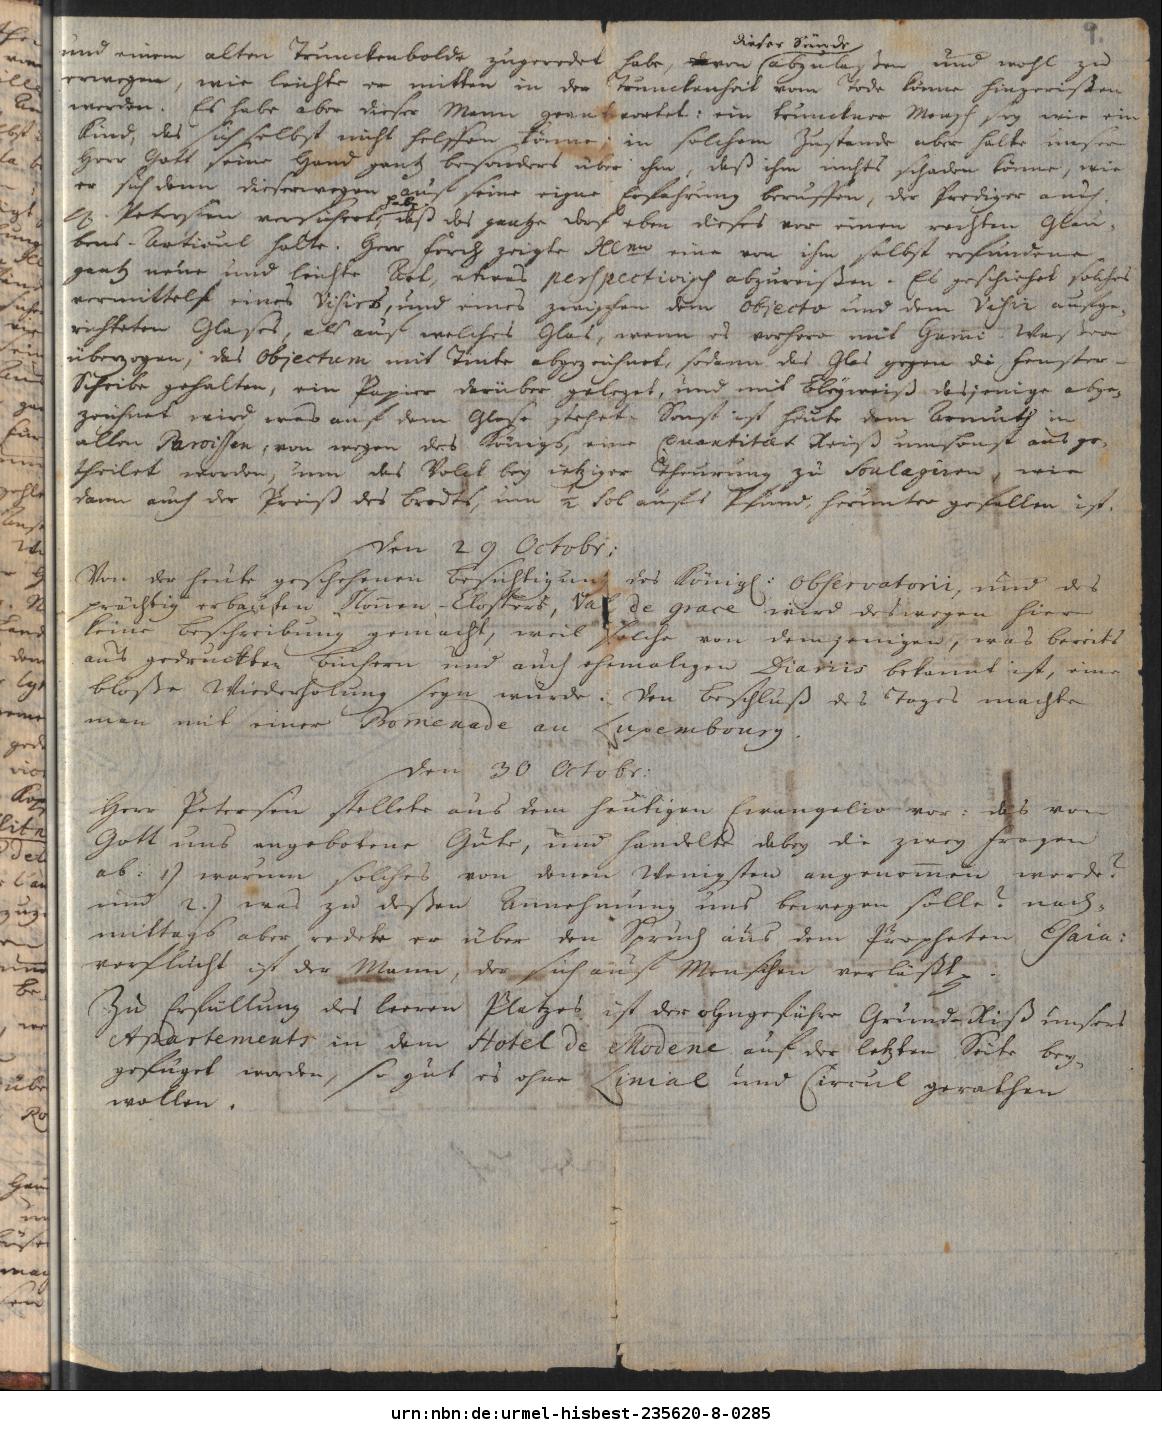 9.
und einem alten Trunckenbolde zugeredet habe, von dieser Sünde abzulaßen und wohl zu
erwegen, wie leichte er mitten in der Trunckenheit vom Tode könne hingerißen
werden. Es habe aber dieser Mann geantwortet: ein trunckner Mensch sey wie ein
Kind, das sich selbst nicht helffen könne; in solchem Zustande aber halte unser
Herr Gott seine Hand gantz besonders über ihn, daß ihm nichts schaden könne, wie
er sich denn dieserwegen auf seine eigne Erfahrung beruffen, der Prediger auch
H. Petersen versichert habe, daß das gantze dorf eben dieses vor einen rechten Glau-
bens-Articul halte. Herr Forch zeigte Illmo eine von ihm selbst erfundene
gantz neue und leichte Art, etwas perspectivisch abzureißen. Es geschiehet solches
vermittelst eines Visirs, und eines zwischen dem Objecto und dem Visir aufge-
richteten Glases, als auf welches Glas, wenn es vorhero mit Gummi Waßer
überzogen, das Objectum mit Tinte abgezeichnet, sodann das Glas gegen die Fenster-
Scheibe gehalten, ein Papier darüber geleget, und mit Bleyweiß dasjenige abge-
zeichnet wird was auf dem Glase stehet. Sonst ist heute dem Armuth in
allen Paroissen, von wegen des Königs, eine Quantität Reiß umsonst ausge-
theilet worden, um das Volck bey ietziger Theurung zu soulagiren, wie
dann auch der Preiß des Brodts, um ½ sol aufs Pfund, herunter gefallen ist.
den 29 Octobr:
Von der heute geschehenen Besichtigung des Königl: Observatorii, und des
prächtig erbauten Nonnen-Closters, Val de grace wird deswegen hier
keine Beschreibung gemacht, weil solche von demjenigen, was bereits
aus gedruckten Büchern und auch ehemaligen Diariis bekannt ist, eine
bloße Wiederholung seyn würde. Den Beschluß des Tages machte
man mit einer Promenade au Luxembourg.
den 30 Octobr:
Herr Petersen stellete aus dem heutigen Evangelio vor: das von
Gott uns angebotene Gute, und handelte dabey die zwey Fragen
ab: 1) warum solches von denen Wenigsten angenommen werde?
und 2.) was zu deßen Annehmung uns bewegen solle? nach-
mittags aber redete er über den Spruch aus dem Propheten Esaia:
verflucht ist der Mann, der sich auf Menschen verläßt.
Zu Erfüllung des leeren Platzes ist der ohngefähre Grund-Riß unsers
Apartements in dem Hotel de Modene auf der letzten Seite bey-
gefüget worden, so gut es ohne Linial und Circul gerathen
wollen.
urn:nbn:de:urmel-hisbest-235620-8-0285